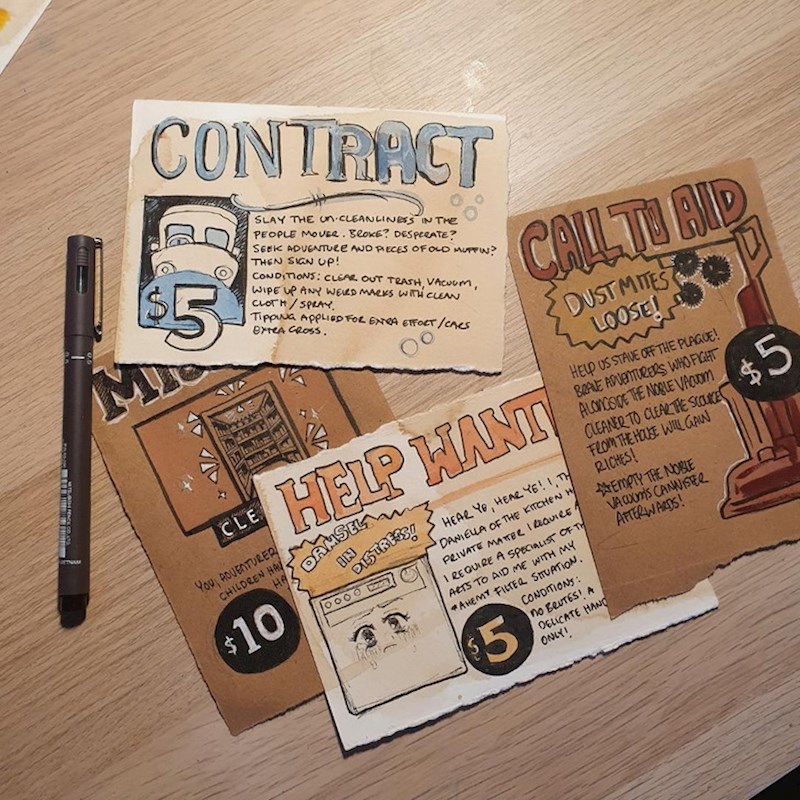 CONTRACT
SLAY THE UN-CLEANLINESS IN THE
PEOPLE MOVER. BROKE? DESPERATE?
SEEK ADVENTURE AND PIECES OF OLD MUFFIN?
THEN SIGN UP!
CONDITIONS: CLEAR OUT TRASH, VACUUM,
WIPE UP ANY WEIRD MARKS WITH CLEAN
CLOTH/SPRAY.
TIPPING APPLIED FOR EXTRA EFFORT/CARS
EXTRA GROSS.
$5
CALL TO AID
DUST MITES
LOOSE!
HELP US STAVE OFF THE PLAGUE!
BRAVE ADVENTURERS WHO FIGHT
ALONGSIDE THE NOBLE VACUUM
CLEANER TO CLEAR THE SCOURGE
FROM THE HOUSE WILL GAIN
RICHES!
EMPTY THE NOBLE
VACUUMS CANNISTER
AFTERWARDS!
$5
MI
CLE
YOU, ADVENTURER
CHILDREN HA
HA
$10
HELP WANT
DAMSEL
IN
DISTRESS!
HEAR YE, HEAR YE! I, TH
DANIELLA OF THE KITCHEN H
PRIVATE MATER I REQUIRE A
I REQUIRE A SPECIALIST OF TH
ARTS TO AID ME WITH MY
*AHEM* FILTER SITUATION.
CONDITIONS:
NO BRUTES! A
DELICATE HAND
ONLY!
$5